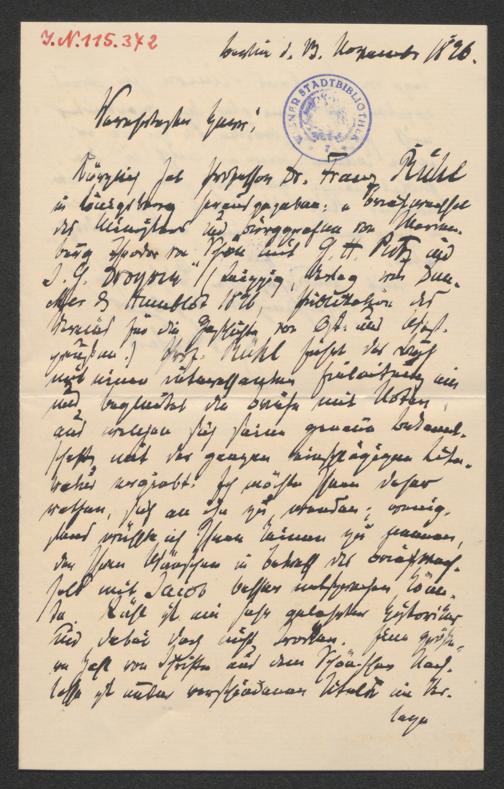 J.N. 115.372
Berlin d. 13. November 1896.
WIENER STADTBIBLIOTHEK
Verehrtester Herr!
Kürzlich hat Professor Dr. Franz Rühl
in Königsberg herausgegeben: „Briefwechsel
des Ministers und Burggrafen von Marien-
burg Theodor von Schön mit G. H. Pertz und
J. G. Droysen" (Leipzig, Verlag von Dun-
cker & Humblot 1896, Publikation des
Vereins für die Geschichte von Ost- und West-
preußen.) Prof. Rühl führt das Buch
mit einer interessanten Einleitung ein
und begleitet die Briefe mit Noten,
aus welchen sich seine genaue Bekannt-
schaft mit der ganzen einschlägigen Lite-
ratur ergiebt. Ich möchte Ihnen daher
rathen, sich an ihn zu wenden; wenig-
stens wüßte ich Ihnen keinen zu nennen,
der Ihren Wünschen in betreff des Briefwech-
sels mit Jacob besser entsprechen kön-
te. Rühl ist ein sehr gelehrter Historiker
und dabei doch nicht trocken. Eine größe-
re Zahl von Schriften aus dem Schönschen Nach-
lasse ist unter verschiedenen Titeln im Ver-
lage